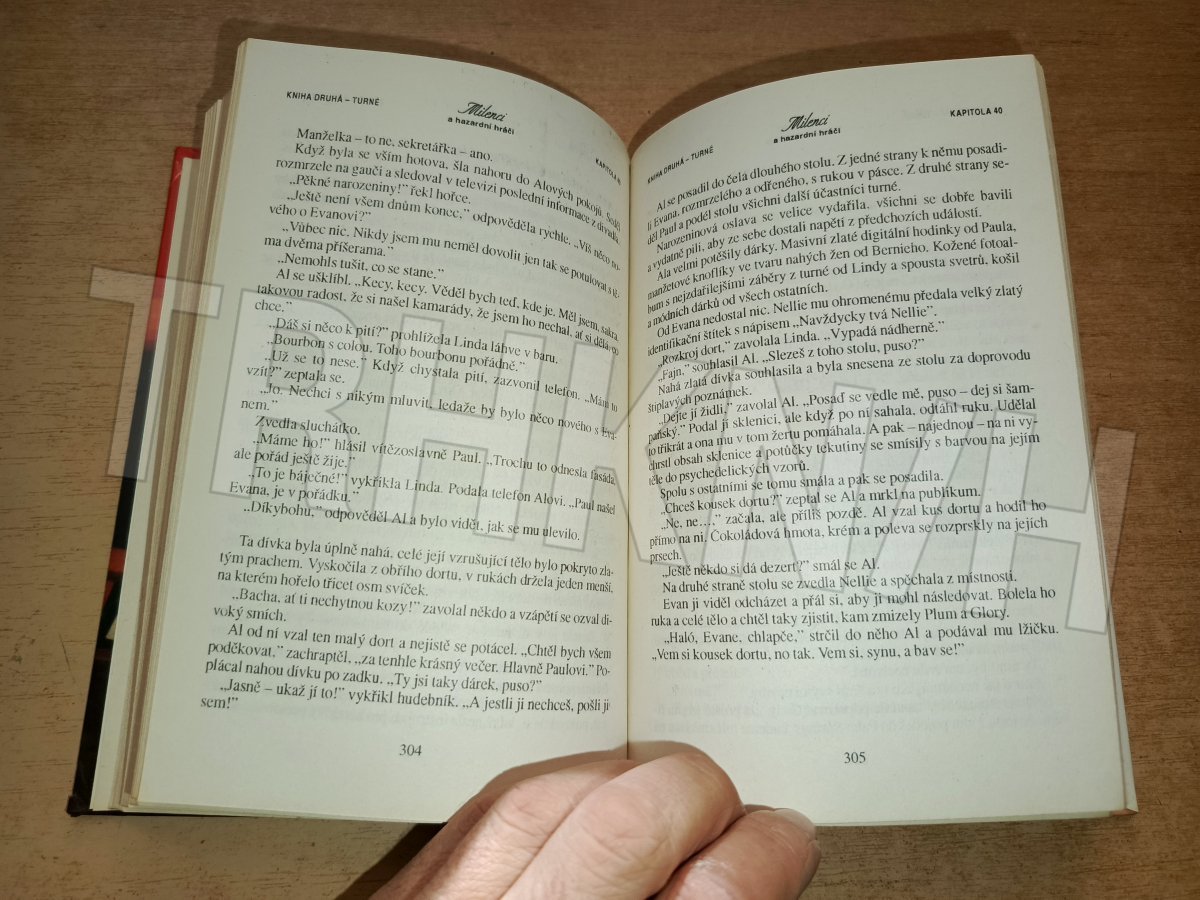 KNIHA DRUHÁ – TURNÉ
Milenci
a hazardní hráči
KAPITOLA 40
Manželka – to ne, sekretářka – ano.
Když byla se vším hotova, šla nahoru do Alových pokojů. Seděl
rozmrzele na gauči a sledoval v televizi poslední informace z divadla.
„Pěkné narozeniny!” řekl hořce.
„Ještě není všem dnům konec,” odpověděla rychle. „Víš něco no-
vého o Evanovi?”
„Vůbec nic. Nikdy jsem mu neměl dovolit jen tak se potulovat s tě-
ma dvěma příšerama.”
„Nemohls tušit, co se stane.”
Al se ušklíbl. „Kecy, kecy. Věděl bych teď, kde je. Měl jsem, sakra,
takovou radost, že si našel kamarády, že jsem ho nechal, ať si dělá co
chce.”
„Dáš si něco k pití?” prohlížela Linda láhve v baru.
„Bourbon s colou. Toho bourbonu pořádně.”
„Už se to nese.” Když chystala pití, zazvonil telefon. „Mám to
vzít?” zeptala se.
„Jo. Nechci s nikým mluvit, ledaže by bylo něco nového s Eva-
nem.”
Zvedla sluchátko.
„Máme ho!” hlásil vítězoslavně Paul. „Trochu to odnesla fasáda,
ale pořád ještě žije.”
„To je báječné!” vykřikla Linda. Podala telefon Alovi. „Paul našel
Evana, je v pořádku.”
„Díkybohu,” odpověděl Al a bylo vidět, jak se mu ulevilo.
Ta dívka byla úplně nahá, celé její vzrušující tělo bylo pokryto zla-
tým prachem. Vyskočila z obřího dortu, v rukách držela jeden menší,
na kterém hořelo třicet osm svíček.
„Bacha, ať ti nechytnou kozy!” zavolal někdo a vzápětí se ozval di-
voký smích.
Al od ní vzal ten malý dort a nejistě se potácel. „Chtěl bych všem
poděkovat,” zachraptěl, „za tenhle krásný večer. Hlavně Paulovi.” Po-
plácal nahou dívku po zadku. „Ty jsi taky dárek, puso?”
„Jasně – ukaž jí to!” vykřikl hudebník. „A jestli ji nechceš, pošli ji
sem!”
304
KNIHA DRUHÁ – TURNÉ
Milenci
a hazardní hráči
KAPITOLA 40
Al se posadil do čela dlouhého stolu. Z jedné strany k němu posadi-
li Evana, rozmrzelého a odřeného, s rukou v pásce. Z druhé strany se-
děl Paul a podél stolu všichni další účastníci turné.
Narozeninová oslava se velice vydařila, všichni se dobře bavili
a vydatně pili, aby ze sebe dostali napětí z předchozích událostí.
Ala velmi potěšily dárky. Masivní zlaté digitální hodinky od Paula,
manžetové knoflíky ve tvaru nahých žen od Bernieho. Kožené fotoal-
bum s nejzdařilejšími záběry z turné od Lindy a spousta svetrů, košil
a módních dárků od všech ostatních.
Od Evana nedostal nic. Nellie mu ohromenému předala velký zlatý
identifikační štítek s nápisem „Navždycky tvá Nellie”.
„Rozkroj dort,” zavolala Linda. „Vypadá nádherně.”
„Fajn,” souhlasil Al. „Slezeš z toho stolu, puso?”
Nahá zlatá dívka souhlasila a byla snesena ze stolu za doprovodu
štiplavých poznámek.
„Dejte jí židli,” zavolal Al. „Posaď se vedle mě, puso – dej si šam-
paňský.” Podal jí sklenici, ale když po ní sahala, odtáhl ruku. Udělal
to třikrát a ona mu v tom žertu pomáhala. A pak – najednou – na ni vy-
chrstl obsah sklenice a potůčky tekutiny se smísily s barvou na jejím
těle do psychedelických vzorů.
Spolu s ostatními se tomu smála a pak se posadila.
„Chceš kousek dortu?” zeptal se Al a mrkl na publikum.
„Ne, ne…,” začala, ale příliš pozdě. Al vzal kus dortu a hodil ho
přímo na ni. Čokoládová hmota, krém a poleva se rozprskly na jejích
prsech.
„Ještě někdo si dá dezert?” smál se Al.
Na druhé straně stolu se zvedla Nellie a spěchala z místnosti.
Evan ji viděl odcházet a přál si, aby ji mohl následovat. Bolela ho
ruka a celé tělo a chtěl taky zjistit, kam zmizely Plum a Glory.
„Haló, Evane, chlapče,” strčil do něho Al a podával mu lžičku.
„Vem si kousek dortu, no tak. Vem si, synu, a bav se!”
305
TRHKNIH